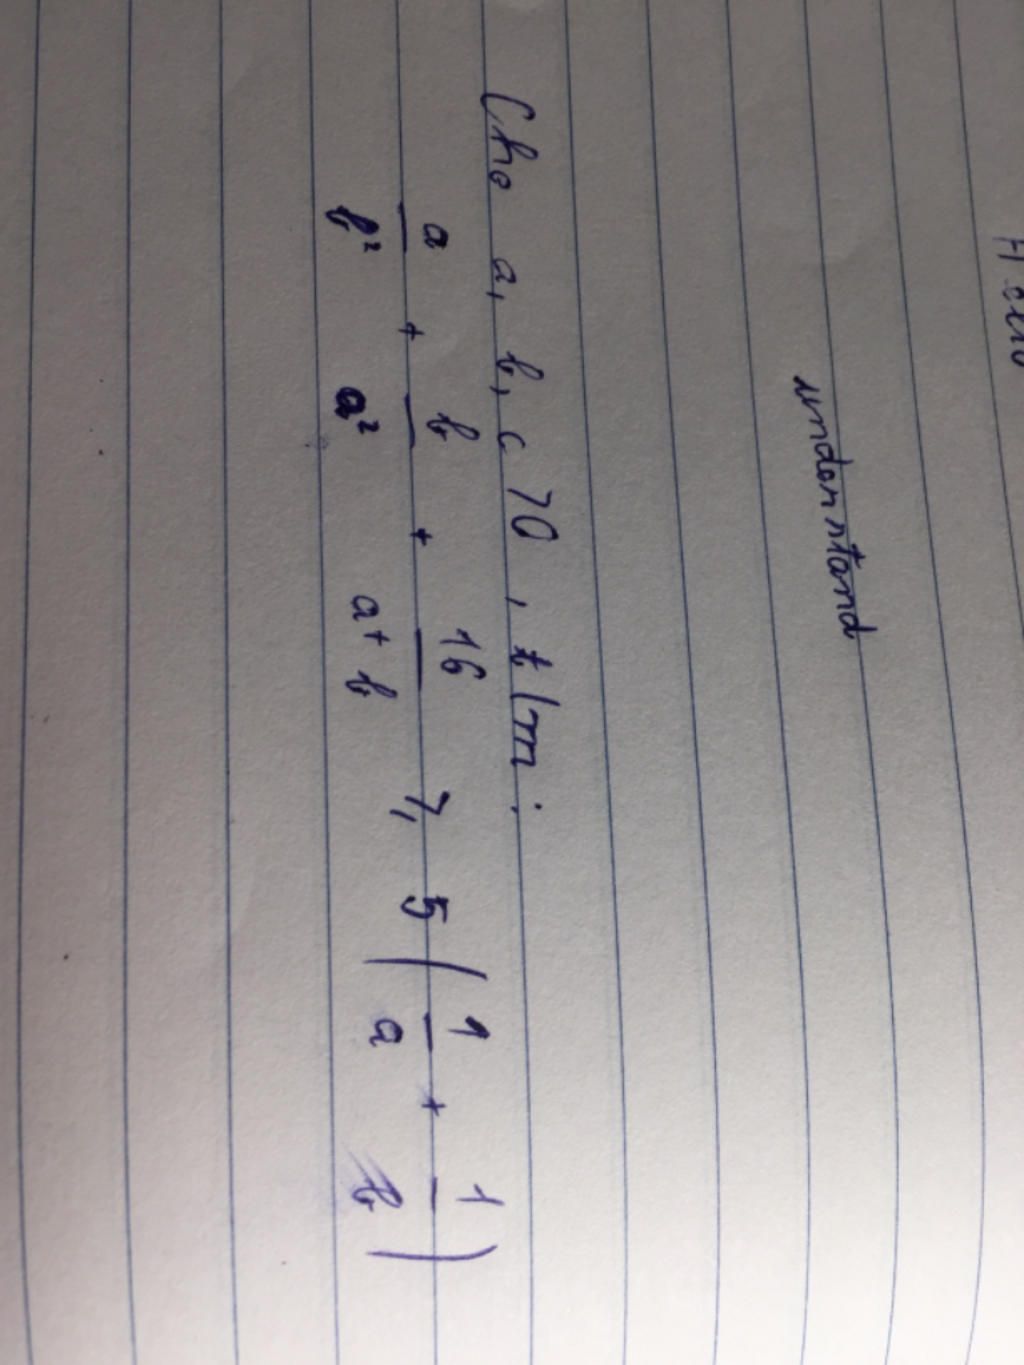 understand
Cho a, b, c > 0, t/m:
a/b² + b/a² + 16/a+b ≥ 5(1/a + 1/b)